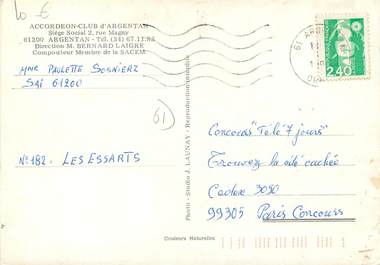 10 €
ACCORDEON-CLUB D'ARGENTAN
Siège Social 2, rue Magny
61200 ARGENTAN - Tél. (34) 67.17.83
Direction M. BERNARD LAIGRE
Compositeur Membre de la SACEM
Mme PAULETTE SOSNIERZ
SAI 61200
N°182. LES ESSARTS
61
Photo - Studio J. LAUNAY - Reproduction interdite
61 ARG
2,40
Concours "Télé 7 jours"
Trouvez la cité cachée
Cedex 3030
99305 Paris Concours
Couleurs Naturelles